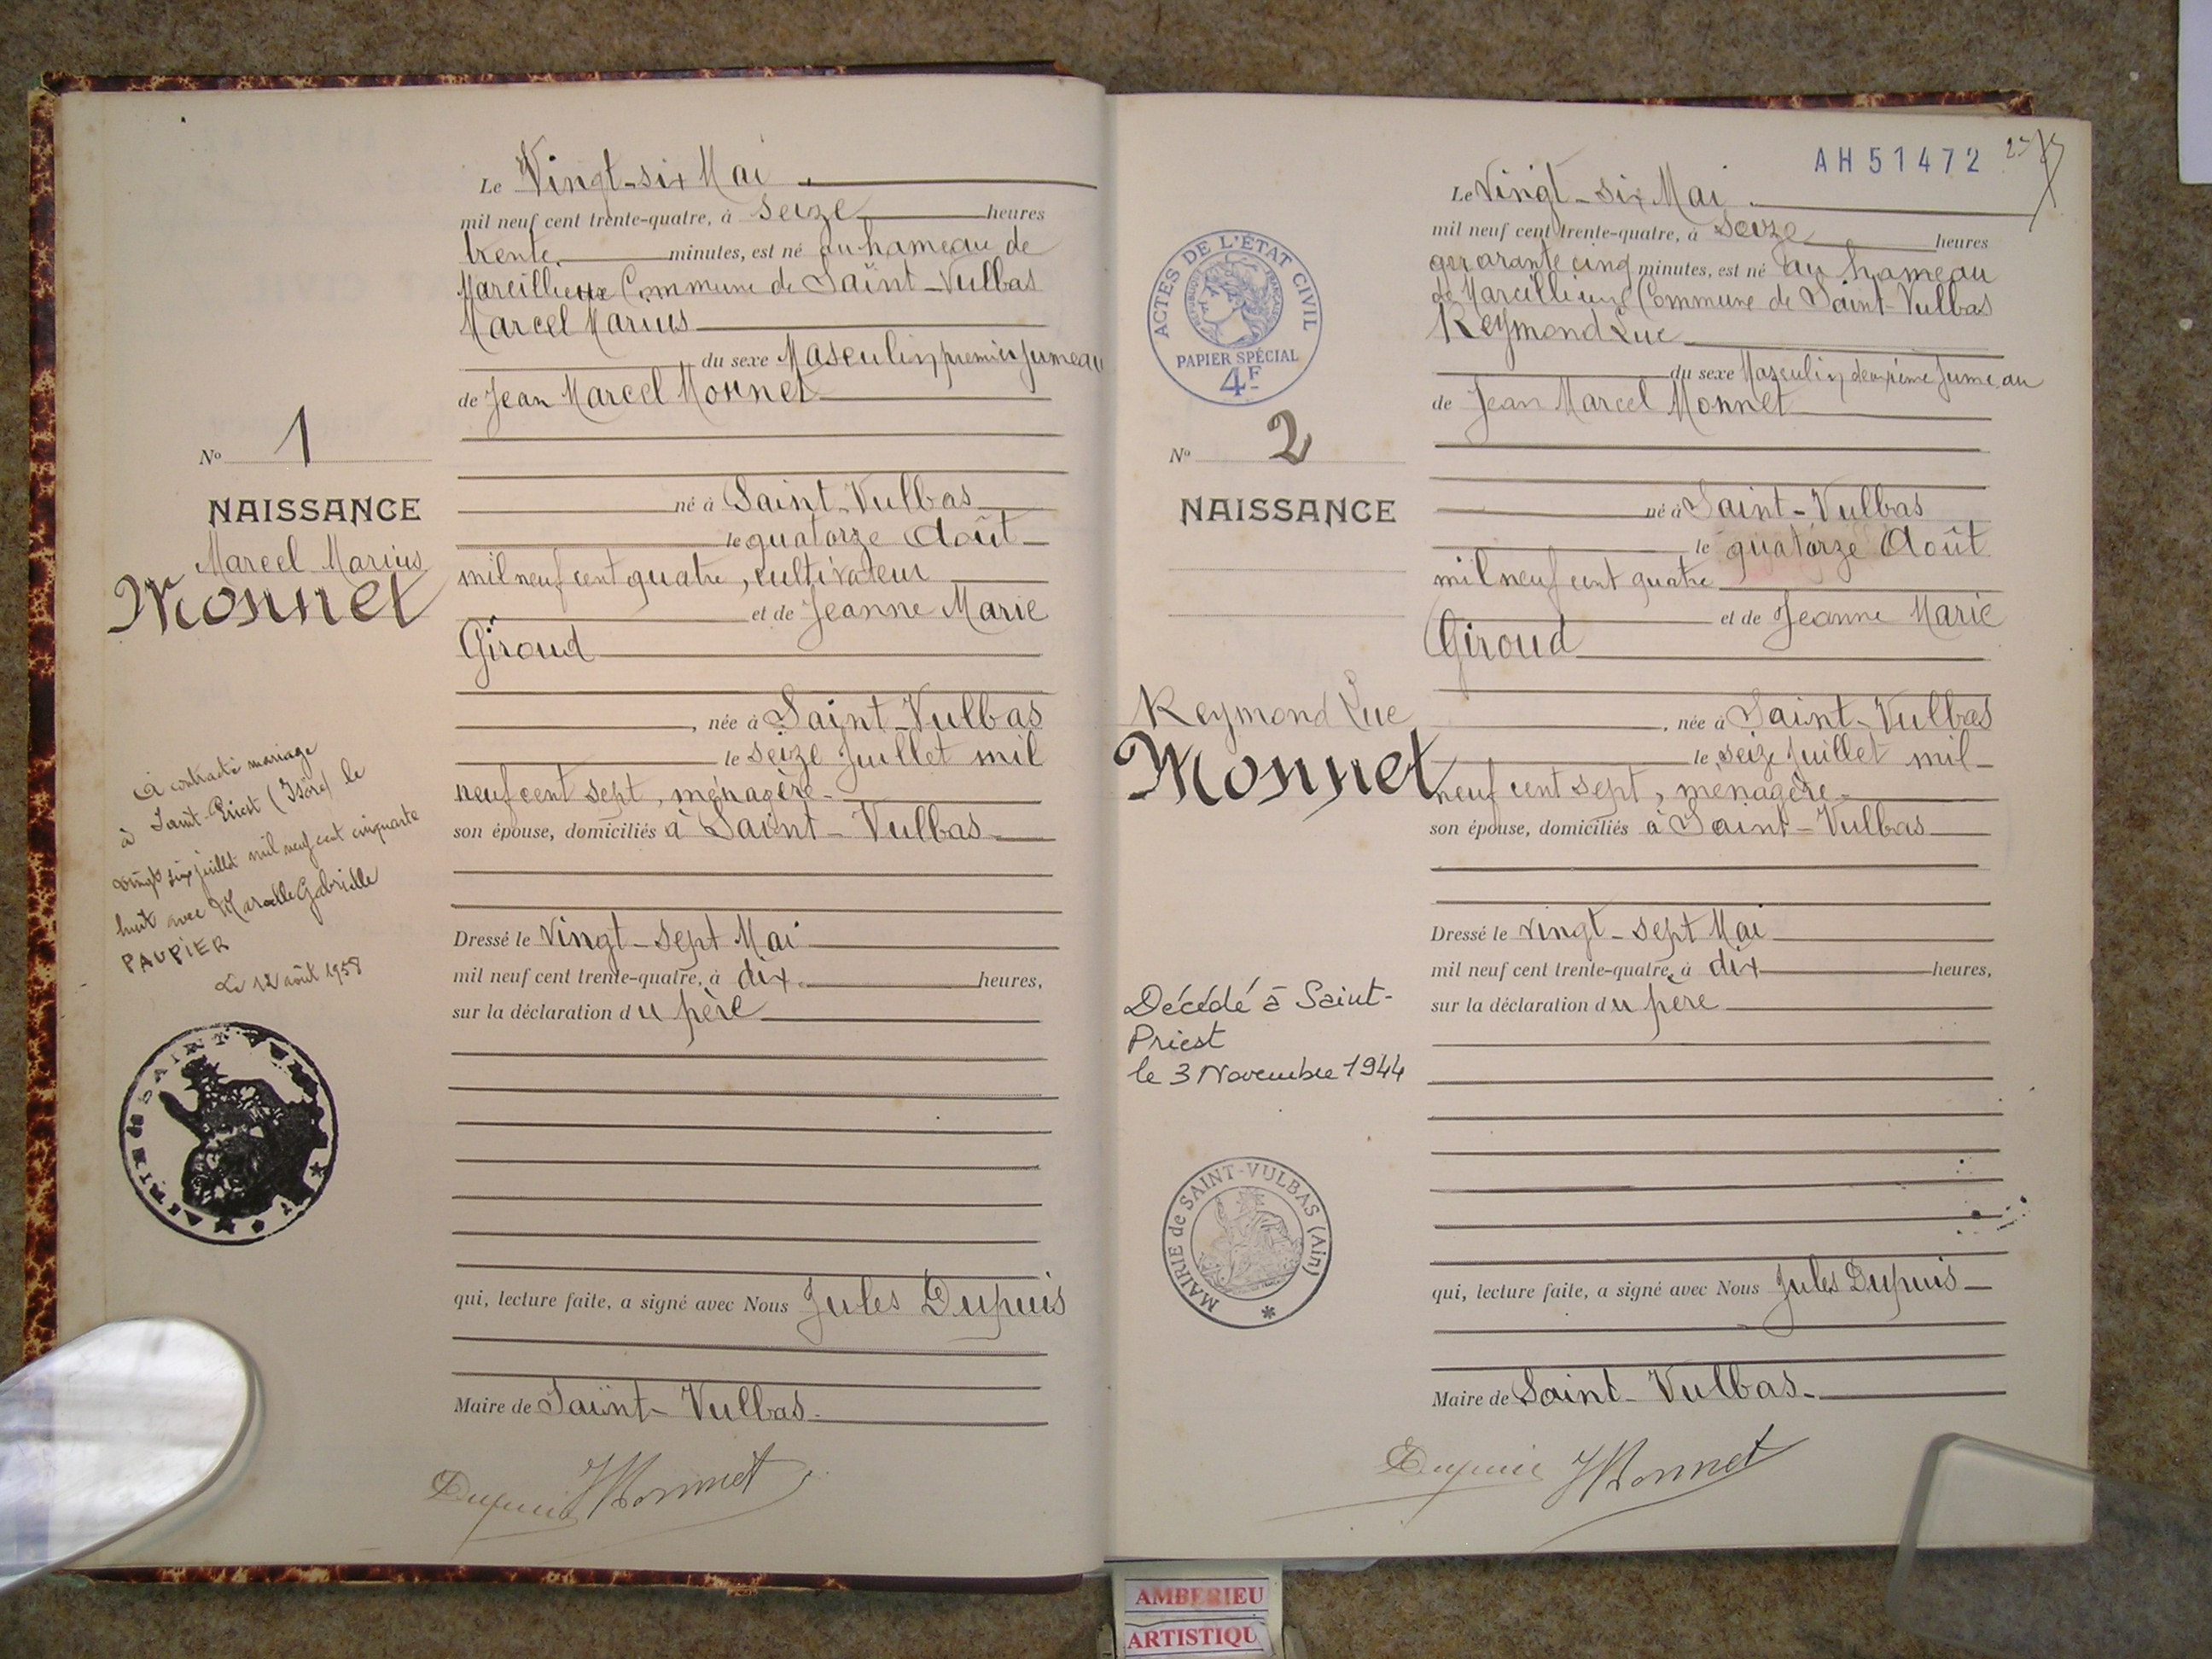 Le Vingt-six Mai
mil neuf cent trente-quatre, à seize heures
trente minutes, est né au hameau de
Marcillieux Commune de Saint-Vulbas
Marcel Marius
du sexe Masculin premier jumeau
de Jean Marcel Monnet
né à Saint-Vulbas
le quatorze Août
mil neuf cent quatre, cultivateur
et de Jeanne Marie
Giroud
, née à Saint-Vulbas
le seize Juillet mil
neuf cent sept, ménagère
son épouse, domiciliés à Saint-Vulbas
Dressé le Vingt-sept Mai
mil neuf cent trente-quatre, à dix heures,
sur la déclaration du père
qui, lecture faite, a signé avec Nous Jules Dupuis
Maire de Saint-Vulbas.
Dupuis JMonnet
No 1
NAISSANCE
Marcel Marius
Monnet
A contracté mariage
à Saint-Priest (Isère) le
vingt six juillet mil neuf cent cinquante
huit avec Marcelle Gabrielle
PAUPIER
Le 12 août 1958
MAIRIE de SAINT-VULBAS
AH51472
Le Vingt-six Mai
mil neuf cent trente-quatre, à seize heures
quarante cinq minutes, est né au hameau
de Marcillieux Commune de Saint-Vulbas
Reymond Luc
du sexe Masculin deuxième Jumeau
de Jean Marcel Monnet
né à Saint-Vulbas
le quatorze Août
mil neuf cent quatre
et de Jeanne Marie
Giroud
, née à Saint-Vulbas
le seize juillet mil
neuf cent sept, ménagère
son épouse, domiciliés à Saint-Vulbas
Dressé le vingt-sept Mai
mil neuf cent trente-quatre, à dix heures,
sur la déclaration du père
qui, lecture faite, a signé avec Nous Jules Dupuis
Maire de Saint-Vulbas.
Dupuis JMonnet
ACTES DE L'ÉTAT CIVIL
RÉPUBLIQUE FRANÇAISE
PAPIER SPÉCIAL
4F
No 2
NAISSANCE
Reymond Luc
Monnet
Décédé à Saint-
Priest
le 3 Novembre 1944
MAIRIE de SAINT-VULBAS (Ain)
AMBERIEU
ARTISTIQU